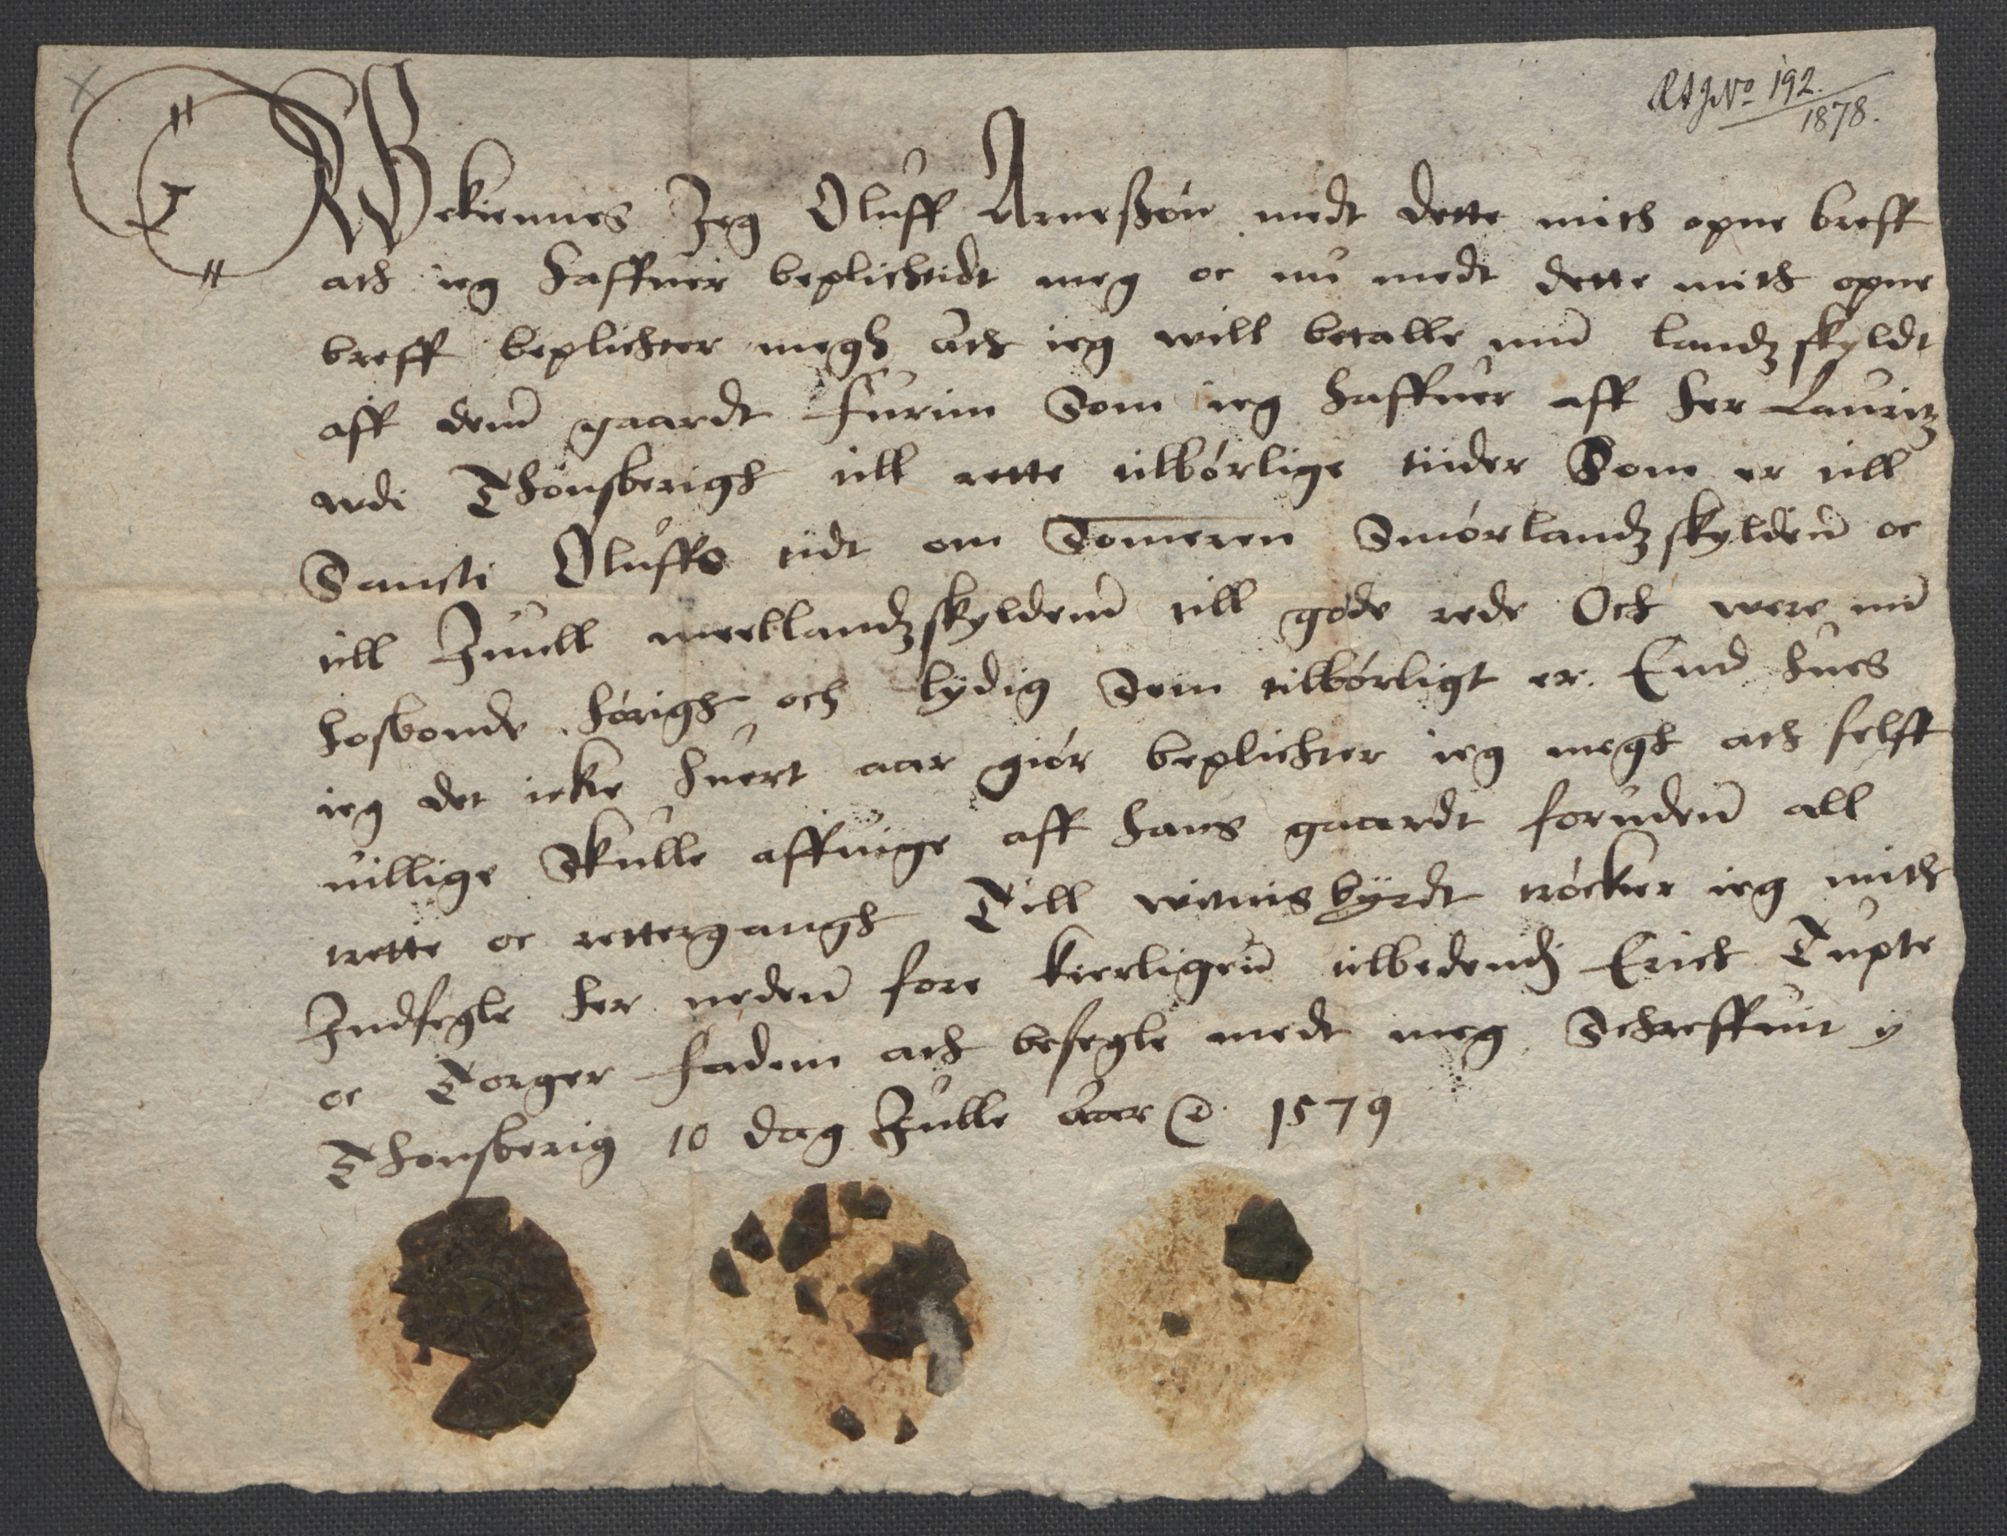 RA J No 192.
1878.
Bekiennes Jeg Oluff Arneßøn medt dette mith opne breff
ath ieg haffuer beplichtidt meg oc nu medt dette mith opne
breff beplichter megh ath ieg will betalle min landzskyldt
aff den gaardt Furim Som ieg haffuer aff her Lauritz
udi Thønsberigh till rette tilbørlige tiider Som er till
Sancti Oluffs tidt om Someren Smørlandzskylden oc
till Juull meellandzskylden till gode rede Och were min
hosbonde hørigh och lydig Som tilbørligt er. End hues
ieg det icke huert aar giør beplichter ieg megh ath selff
uillige Skulle affuige aff hans gaardt foruden all
trette oc rettergangh Till witnisbyrdt trøcker ieg mith
Indsegle her neden fore kierligen tilbedendj Erich Tupte
oc Torger Fadim ath besegle medt meg Schreffuit y
Thonsberig 10 dag Julle aar 1579